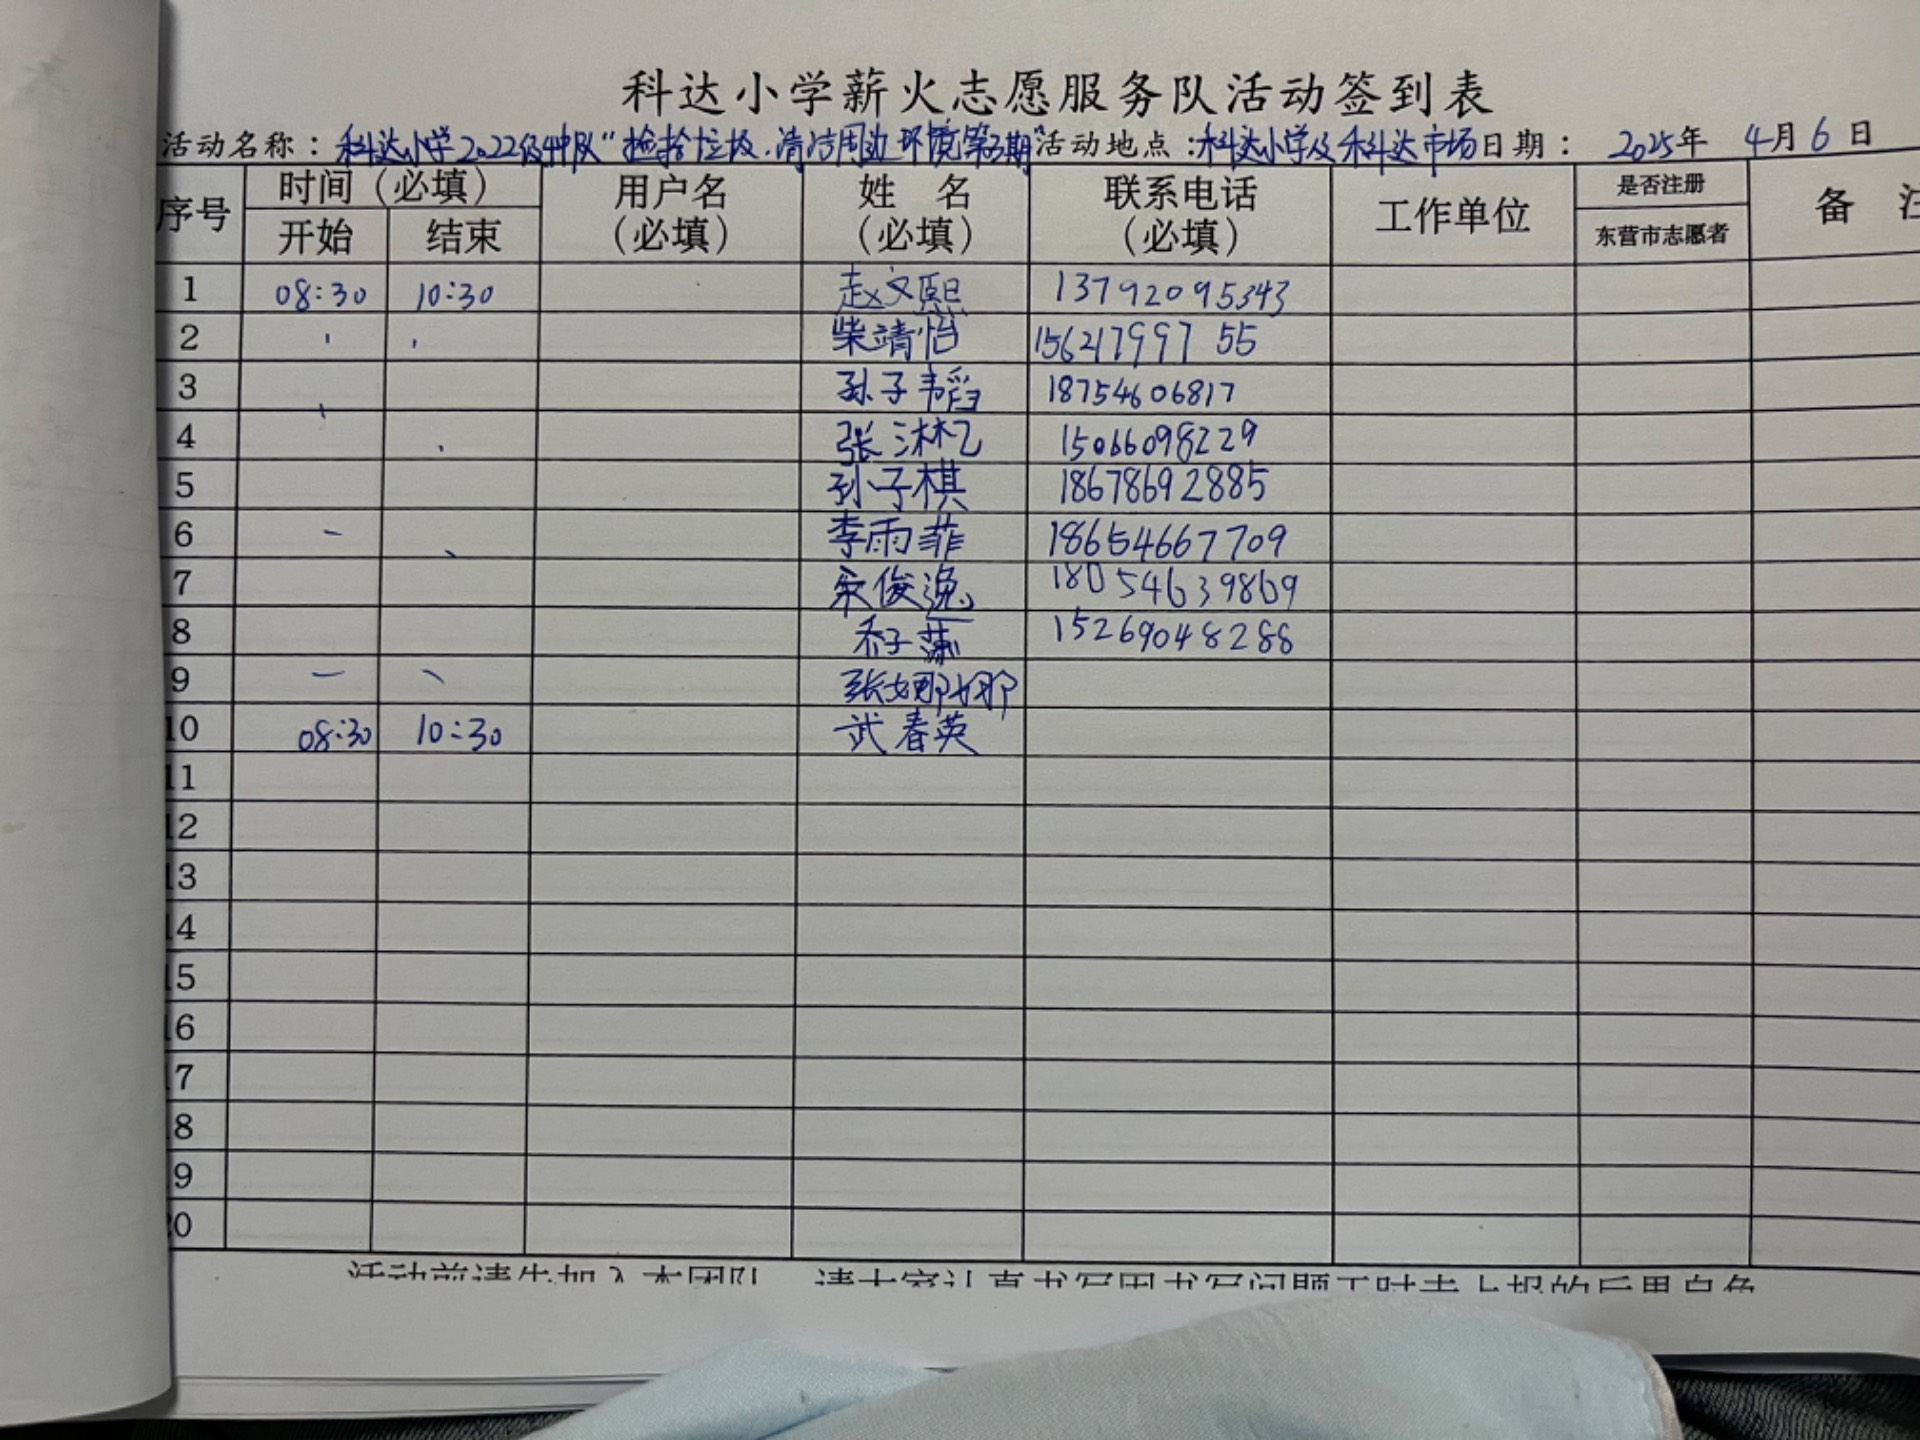 科达小学薪火志愿服务队活动签到表
活动名称：科达小学2022级4中队"捡拾垃圾.清洁周边环境第3期"活动地点：科达小学及科达市场日期：2025年4月6日
序号 时间（必填） 用户名（必填） 姓名（必填） 联系电话（必填） 工作单位 是否注册 备注
开始 结束 东营市志愿者
1 08:30 10:30 赵文熙 13792095343
2 柴靖怡 15621799755
3 孙子韬 18754606817
4 张沐忆 15066098229
5 孙子棋 18678692885
6 李雨菲 18654667709
7 宋俊逸 18054639869
8 乔子潇 15269048288
9 张娜娜
10 08:30 10:30 武春英
11
12
13
14
15
16
17
18
19
20